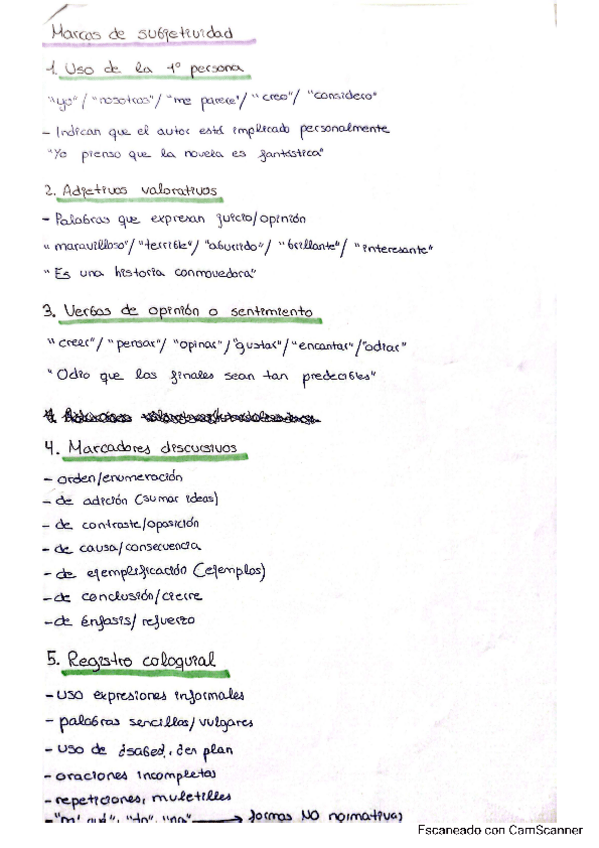 Marcas de subjetividad
1. Uso de la 1º persona
"yo"/ "nosotros"/ "me parece"/ "creo"/ "considero"
- Indican que el autor está implicado personalmente
"Yo pienso que la novela es fantástica"
2. Adjetivos valorativos
- Palabras que expresan juicio/opinión
"maravilloso"/ "terrible"/ "aburrido"/ "brillante"/ "interesante"
"Es una historia conmovedora"
3. Verbos de opinión o sentimiento
"creer"/ "pensar"/ "opinar"/ "gustar"/ "encantar"/ "odiar"
"Odio que los finales sean tan predecibles"
4. Marcadores discursivos
- orden/enumeración
- de adición (sumar ideas)
- de contraste/oposición
- de causa/consecuencia
- de ejemplificación (ejemplos)
- de conclusión/cierre
- de énfasis/refuerzo
5. Registro coloquial
- uso expresiones informales
- palabras sencillas/vulgares
- uso de ¿sabes?, ¿en plan
- oraciones incompletas
- repeticiones, muletillas
→ formas NO normativas
Escaneado con CamScanner